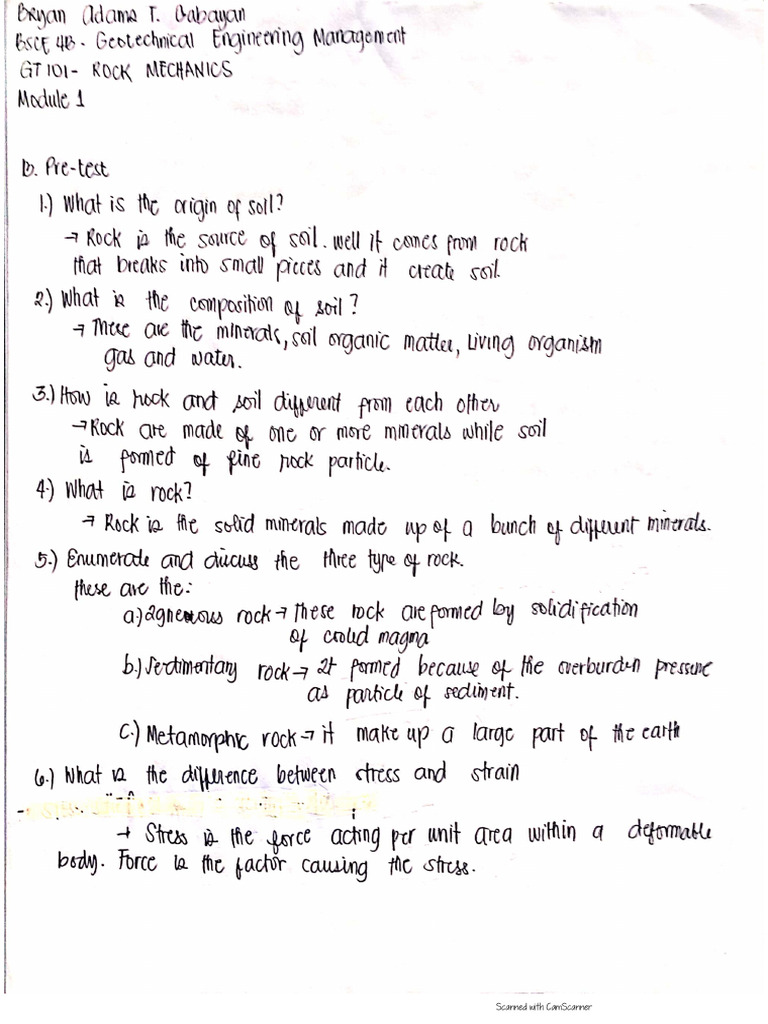 Bryan Adams T. Gabayan
BSCE 4B - Geotechnical Engineering Management
GT 101 - ROCK MECHANICS
Module 1
D. Pre-test
1.) What is the origin of soil?
→ Rock is the source of soil. well it comes from rock
that breaks into small pieces and it create soil.
2.) What is the composition of soil?
→ These are the minerals, soil organic matter, living organism
gas and water.
3.) How is rock and soil different from each other
→ Rock are made of one or more minerals while soil
is formed of fine rock particle.
4.) What is rock?
→ Rock is the solid minerals made up of a bunch of different minerals.
5.) Enumerate and discuss the three type of rock.
these are the:
a.) Igneuous rock → These rock are formed by solidification
of coolid magma
b.) Serdimentary rock → It formed because of the overburden pressure
as particle of sediment.
c.) Metamorphic rock → it make up a large part of the earth
6.) What is the difference between stress and strain
→ Stress is the force acting per unit area within a deformable
body. Force is the factor causing the stress.
Scanned with CamScanner